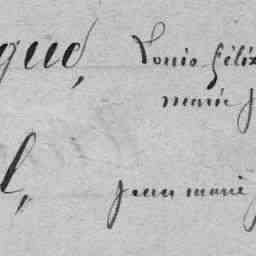 gué, Louis Féli
marie
l, jean marie